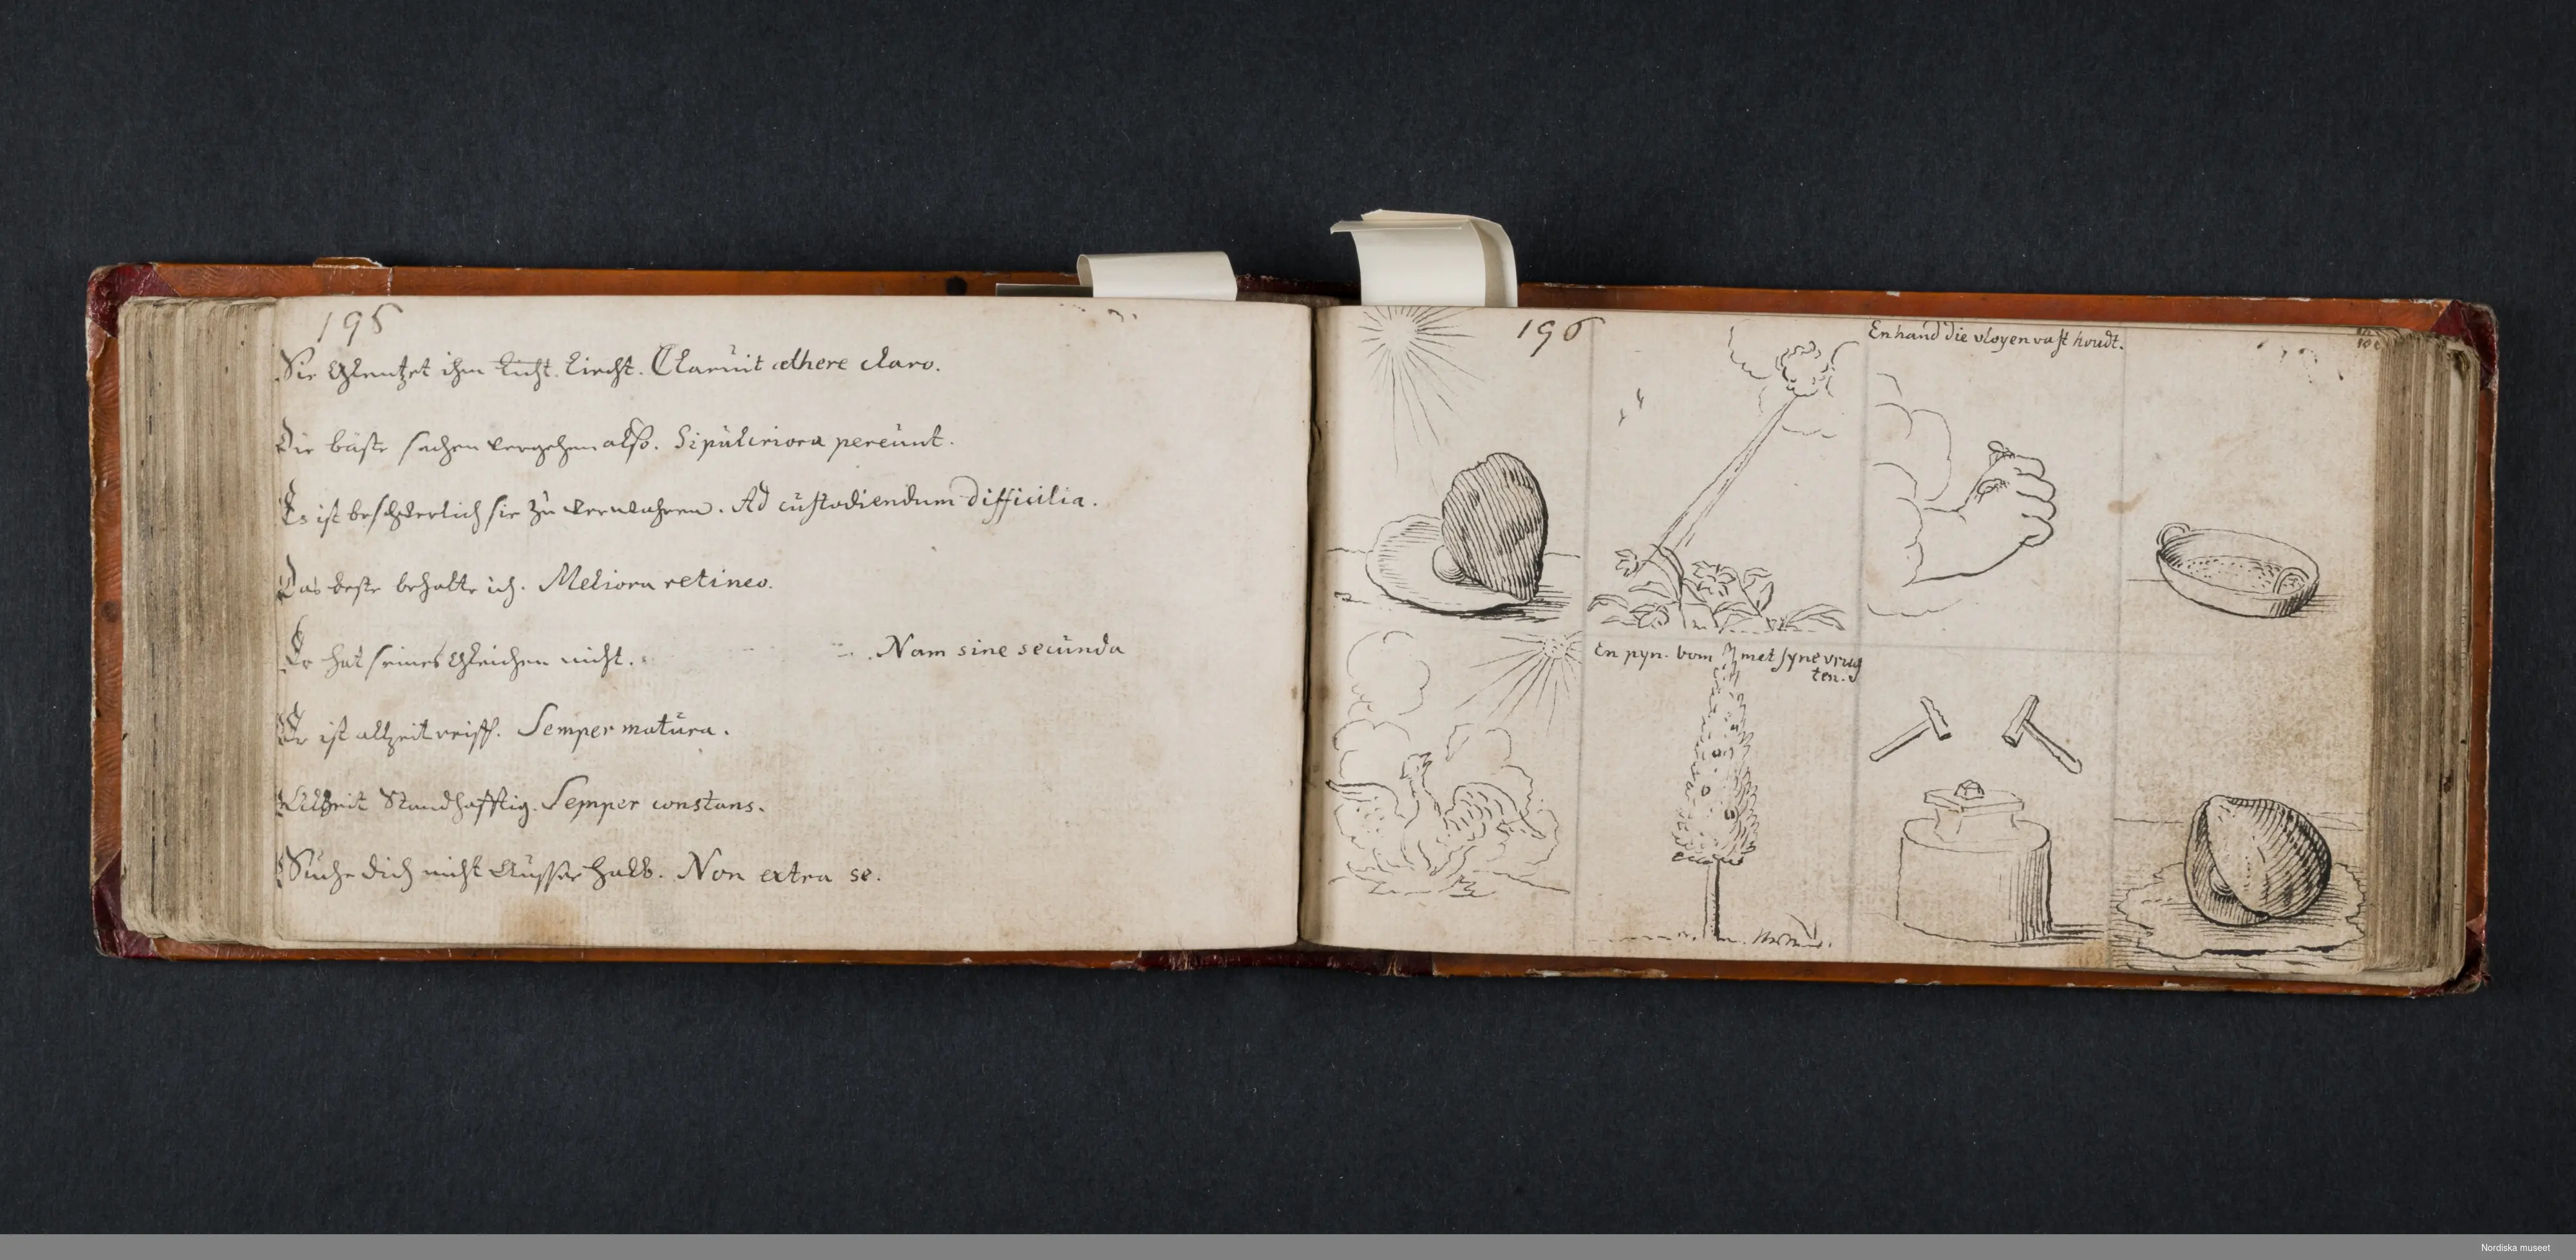 195
Sie Glentzet ihm Licht. Liecht. Claruit æthere claro.
Die bäste sachen vergehen also. Si pulcriora pereunt.
Es ist beschwerlich sie zu verwahren. Ad custodiendum difficilia.
Das beste behalte ich. Meliora retineo.
Er hat seines Gleichen nicht. Nam sine secunda
Er ist allzeit reiff. Semper matura.
Allzeit Standhafftig. Semper constans.
Suche dich nicht Ausserhalb. Non extra se.
196
En hand die vloyen vast houdt.
En pyn-bom met syne vrug
ten.
Nordiska museet